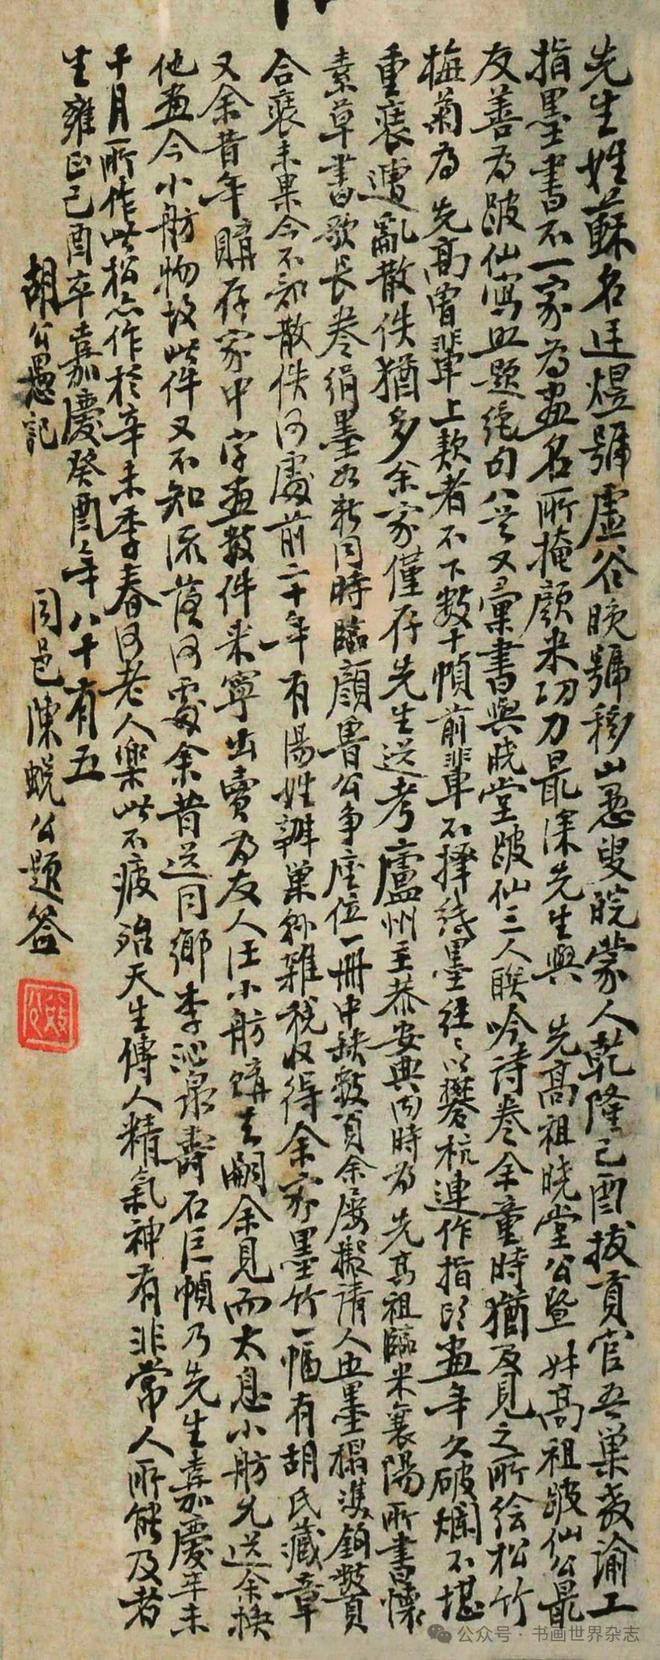 先生姓蘇名廷煜號虛谷晚號移山愚叟皖蒙人乾隆己酉拔貢官吾巢教諭工
指墨書不一家為畫名所掩顏米功力最深先生與 先高祖曉堂公暨 高祖跛仙公最
友善為跛仙寫並題絕句八 又彙書與曉堂跛仙三人聯吟詩卷余童時猶及見之所绘松竹
梅菊為 先高曾輩上款者不下數十幀前輩不擇紙墨往 連作指頭畫年久破爛不堪
重裱遭亂散佚猶多余家僅存先生送考廬州主恭安典內時為 先高祖臨米襄陽所書懷
素草書歌長卷绢墨如新同時臨顏魯公爭座位一冊中缺數頁余屡擬請人 墨榻雙鉤數頁
合裱未果今不知散佚何處前二十年有陽姓辦巢 雜稅收得余家墨竹一幅有胡氏藏章
又余昔年購存家中字畫數件来寧出賣為友人汪小舫購去嗣余見而太息小舫允送余换
他畫今小舫物故此件又不知流落何處余昔送同鄉李沁泉壽石巨幀乃先生嘉慶辛未
十月所作此松亦作於辛未季春何老人樂此不疲殆天生傳人精氣神有非常人所能及者
生雍正己酉卒嘉慶癸酉年八十有五
胡公愚記 同邑陳蜕公題簽
公众号·书画世界杂志